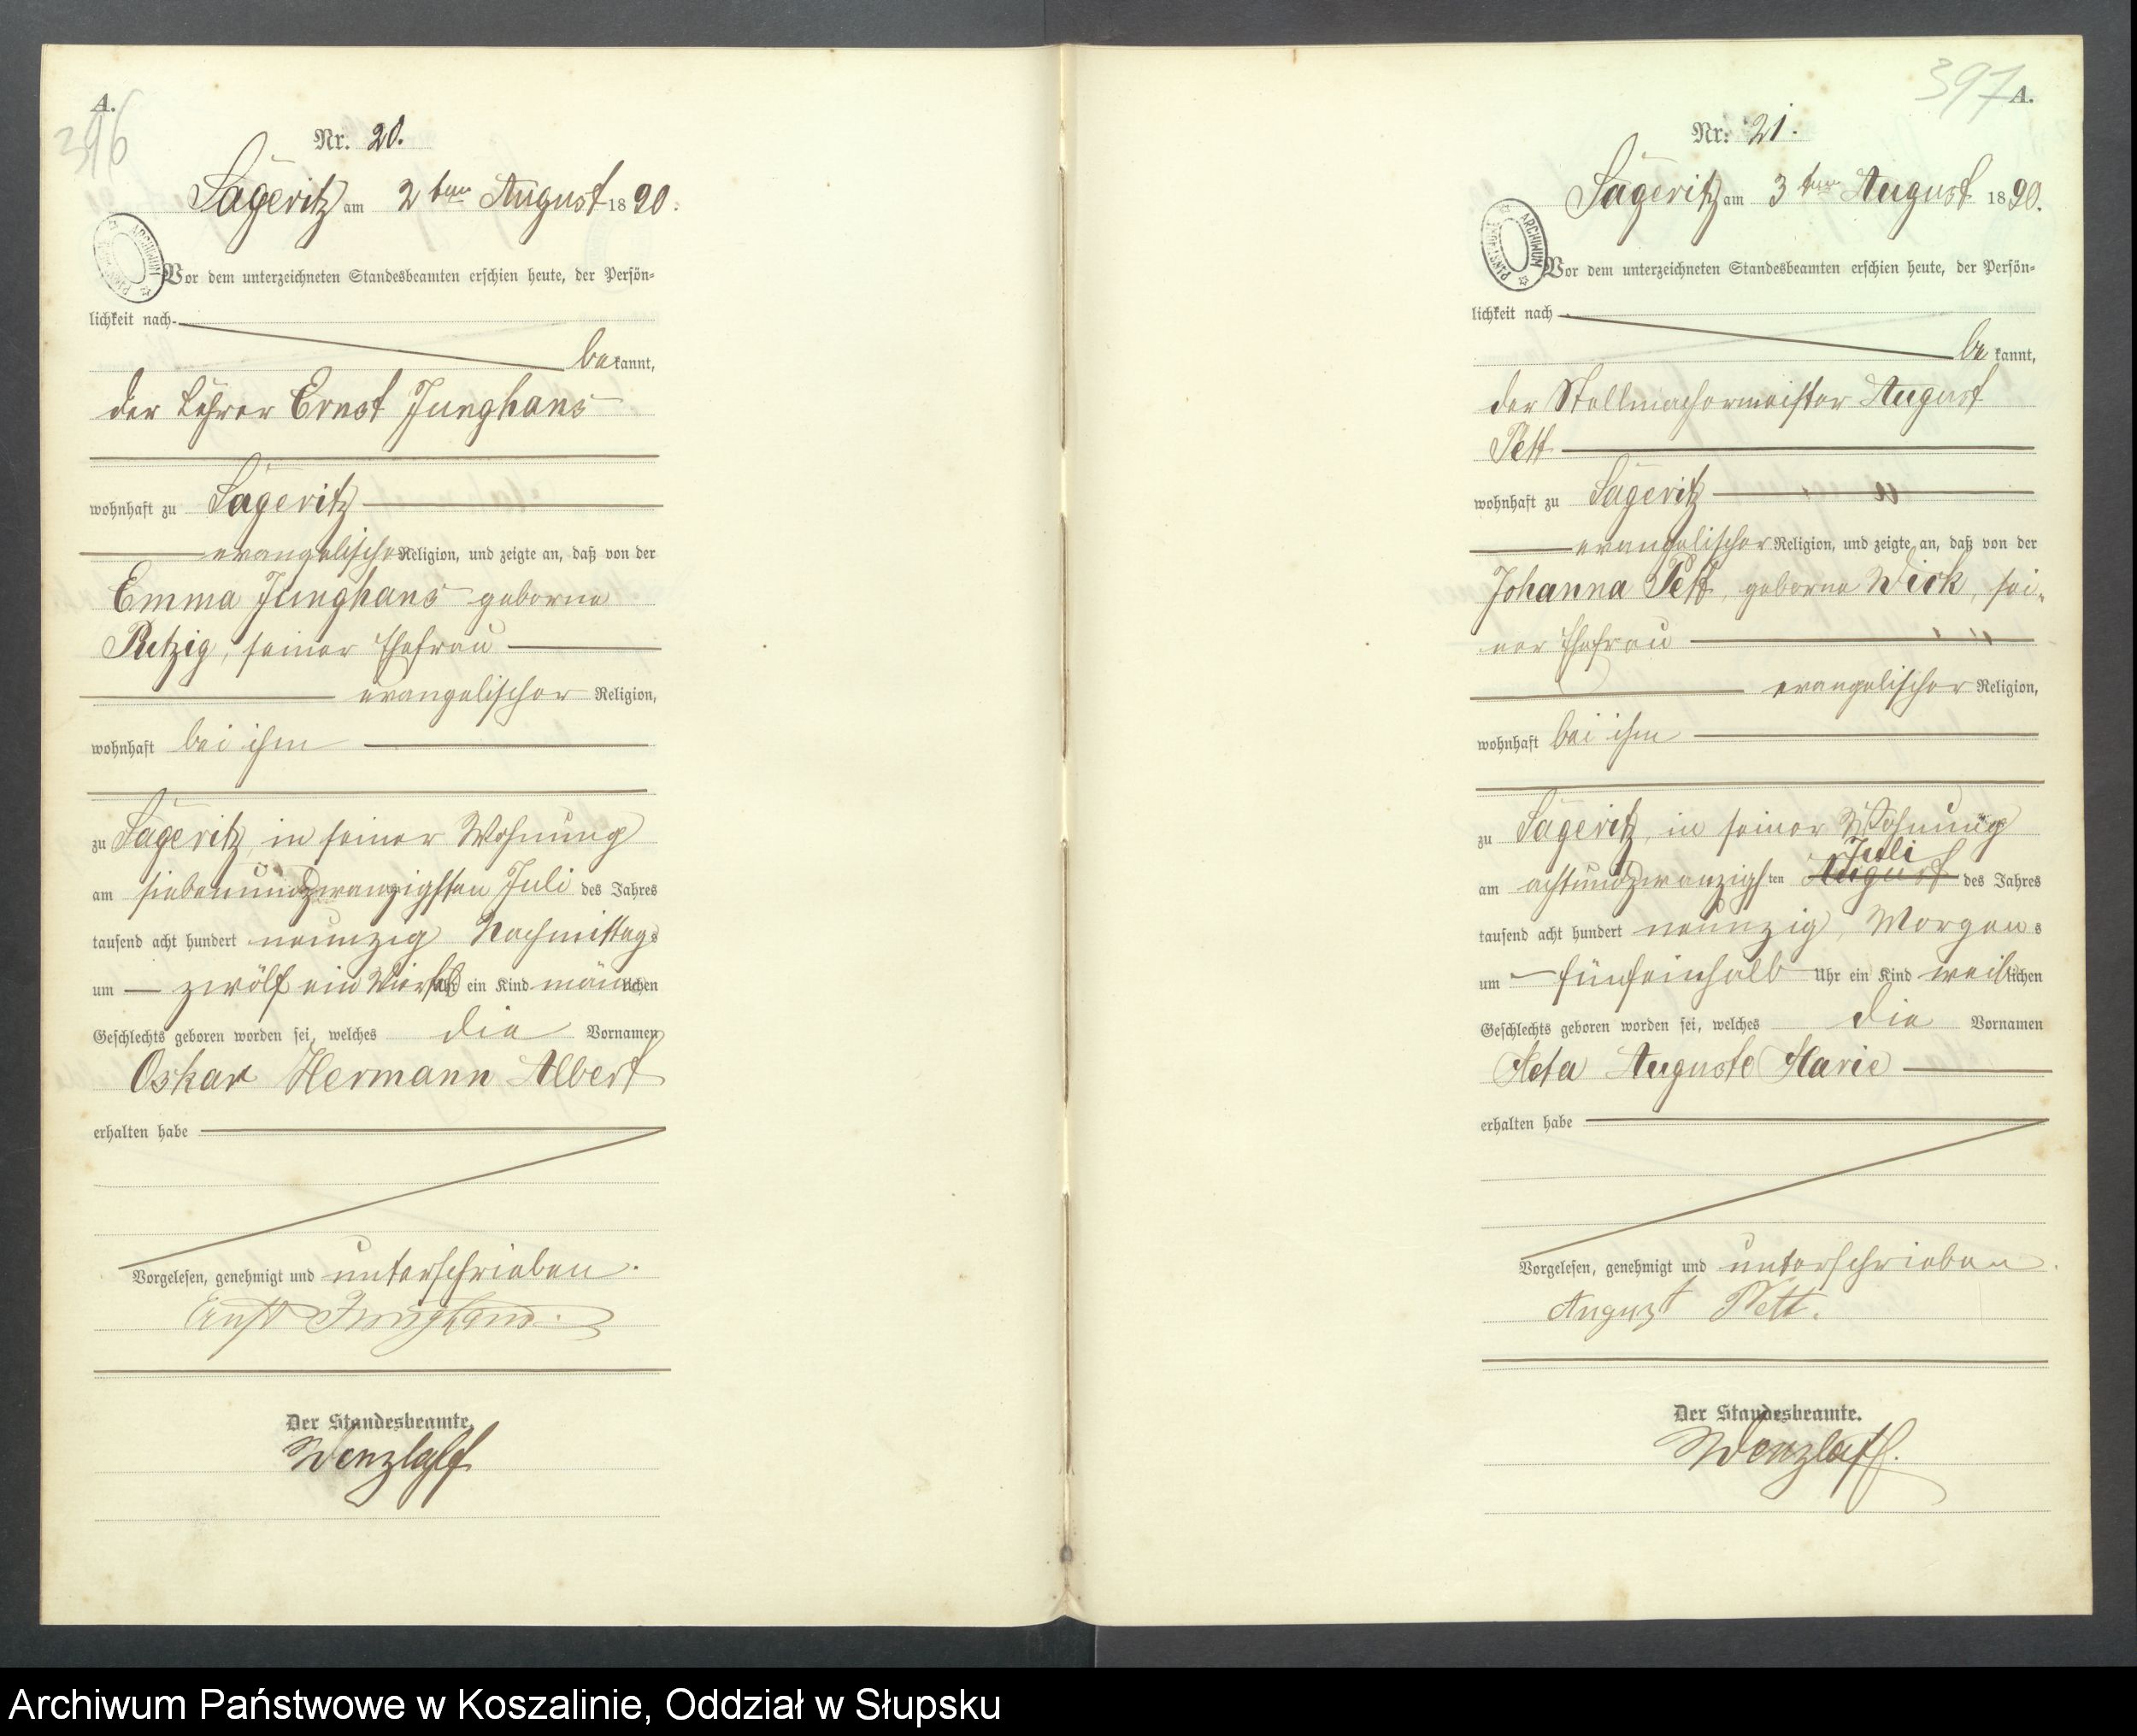 A.
396
Nr. 20.
Sageritz am 2ten August 1890.
ARCHIWUM PAŃSTWOWE
Vor dem unterzeichneten Standesbeamten erschien heute, der Persön-
lichkeit nach
bekannt,
der Lehrer Ernst Junghans
wohnhaft zu Sageritz
evangelischer Religion, und zeigte an, daß von der
Emma Junghans geborne
Retzig, seiner Ehefrau
evangelischer Religion,
wohnhaft bei ihm
zu Sageritz, in seiner Wohnung
am siebenundzwanzigsten Juli des Jahres
tausend acht hundert neunzig Nachmittags
um zwölf ein Viertel Uhr ein Kind männlichen
Geschlechts geboren worden sei, welches die Vornamen
Oskar Hermann Albert
erhalten habe
Vorgelesen, genehmigt und unterschrieben.
Ernst Junghans.
Der Standesbeamte.
Wenzlaff
397
A.
Nr. 21.
Sageritz am 3ten August 1890.
ARCHIWUM PAŃSTWOWE
Vor dem unterzeichneten Standesbeamten erschien heute, der Persön-
lichkeit nach
bekannt,
der Stellmachermeister August
Pett
wohnhaft zu Sageritz
evangelischer Religion, und zeigte an, daß von der
Johanna Pett, geborne Dick, sei-
ner Ehefrau
evangelischer Religion,
wohnhaft bei ihm
zu Sageritz, in seiner Wohnung
Juli
am achtundzwanzigsten August des Jahres
tausend acht hundert neunzig, Morgens
um fünfeinhalb Uhr ein Kind weiblichen
Geschlechts geboren worden sei, welches die Vornamen
Meta Auguste Marie
erhalten habe
Vorgelesen, genehmigt und unterschrieben.
August Pett.
Der Standesbeamte.
Wenzlaff.
Archiwum Państwowe w Koszalinie, Oddział w Słupsku